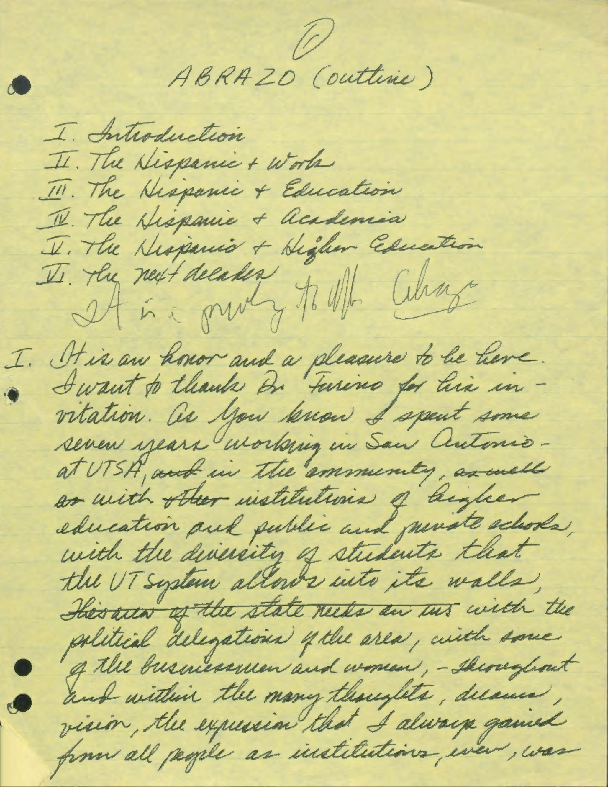 1
ABRAZO (outline)
I. Introduction
II. The Hispanic + Work
III. The Hispanic + Education
IV. The Hispanic + Academia
V. The Hispanic + Higher Education
VI. The next decades
It is a to
I. It is an honor and a pleasure to be here.
I want to thank Dr Furino for his in-
vitation. As you know I spent some
seven years working in San Antonio -
at UTSA, and in the community, as well
as with other institutions of higher
education and public and private schools,
with the diversity of students that
the UT System allows into its walls,
This area of the state needs an ins with the
political delegations of the area, with some
of the businessmen and women, - throughout
and within the many thoughts, dreams,
vision, the expression that I always gained
from all people as institutions, even, was